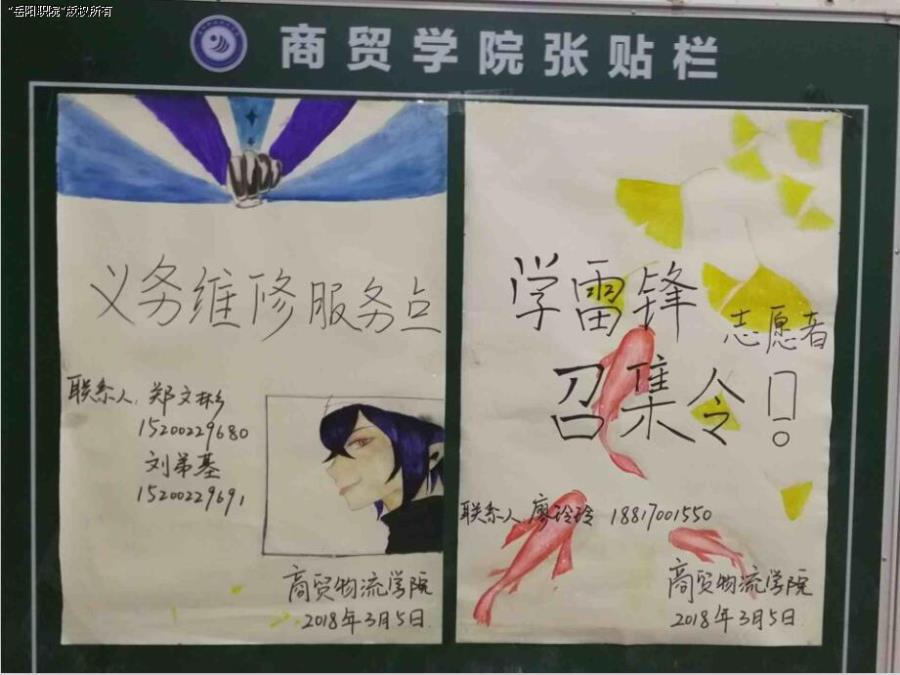 “岳阳职院”版权所有
商贸学院张贴栏
义务维修服务点
联系人:郑文彬
15200229680
刘弟基
15200229691
商贸物流学院
2018年3月5日
学雷锋志愿者
召集令!
联系人 廖玲玲 18817001550
商贸物流学院
2018年3月5日